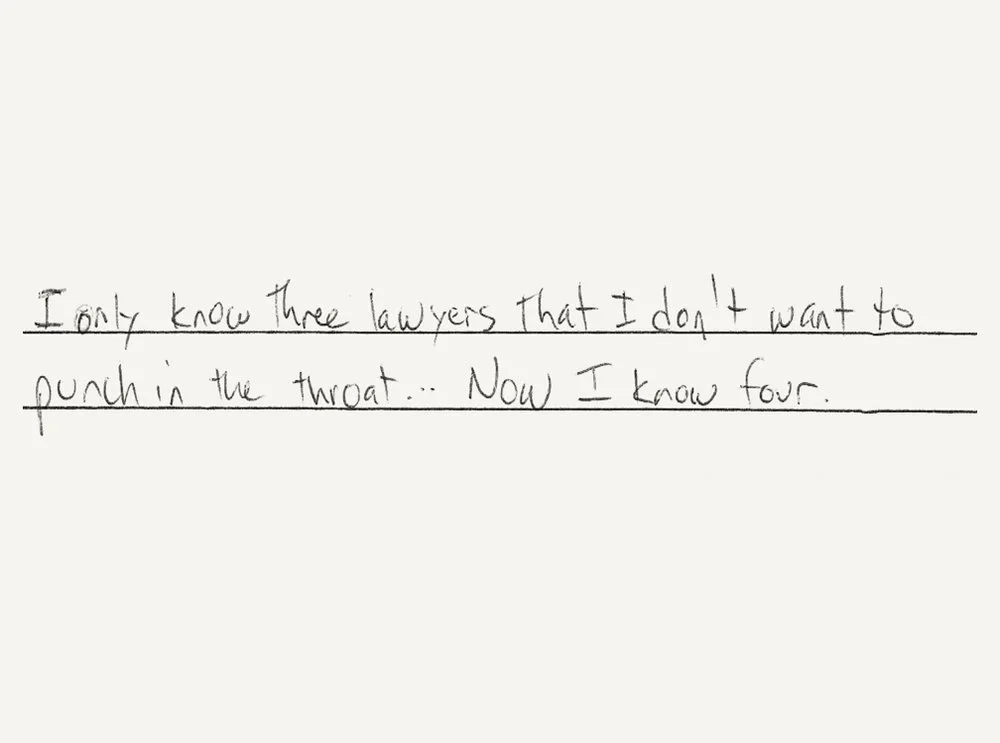 I only know three lawyers that I don't want to
punch in the throat... Now I know four.